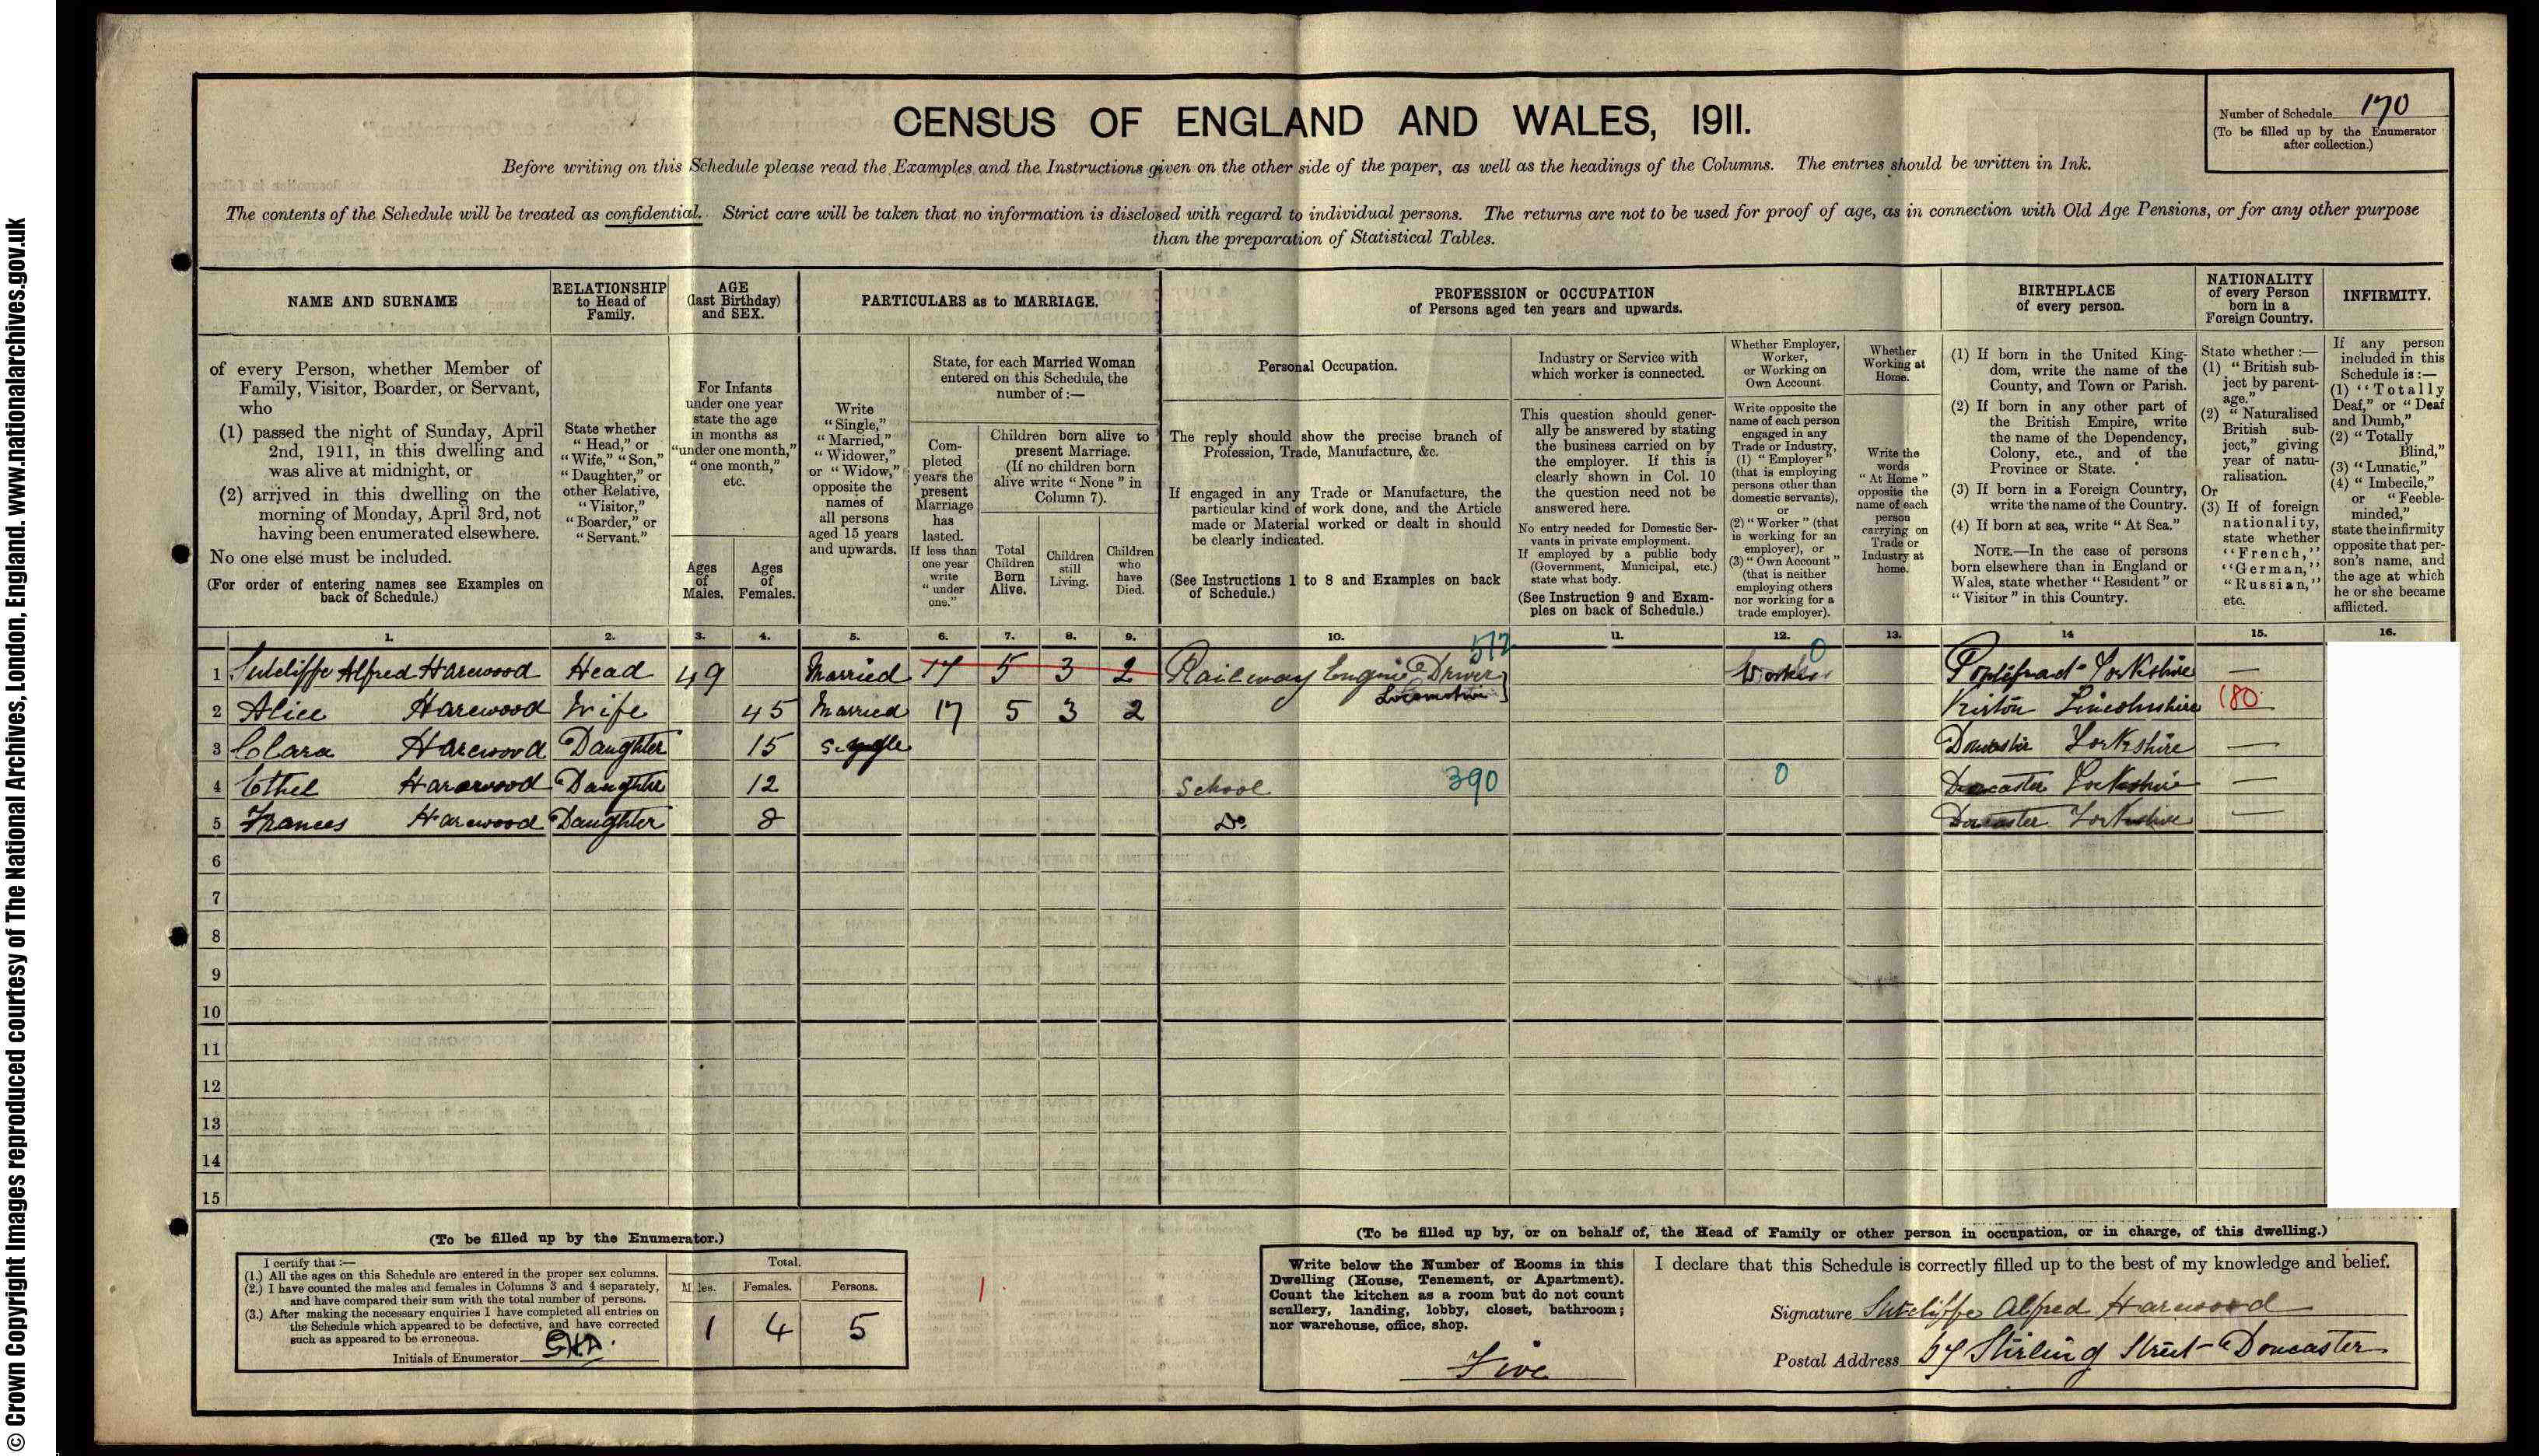 © Crown Copyright Images reproduced courtesy of The National Archives, London, England. www.nationalarchives.gov.uk
CENSUS OF ENGLAND AND WALES, 1911.
Number of Schedule 170
(To be filled up by the Enumerator
after collection.)
Before writing on this Schedule please read the Examples and the Instructions given on the other side of the paper, as well as the headings of the Columns. The entries should be written in Ink.
The contents of the Schedule will be treated as confidential. Strict care will be taken that no information is disclosed with regard to individual persons. The returns are not to be used for proof of age, as in connection with Old Age Pensions, or for any other purpose
than the preparation of Statistical Tables.
NAME AND SURNAME
of every Person, whether Member of
Family, Visitor, Boarder, or Servant,
who
(1) passed the night of Sunday, April
2nd, 1911, in this dwelling and
was alive at midnight, or
(2) arrived in this dwelling on the
morning of Monday, April 3rd, not
having been enumerated elsewhere.
No one else must be included.
(For order of entering names see Examples on
back of Schedule.)
RELATIONSHIP
to Head of
Family.
State whether
"Head," or
"Wife," "Son,"
"Daughter," or
other Relative,
"Visitor,"
"Boarder," or
"Servant."
AGE
(last Birthday)
and SEX.
For Infants
under one year
state the age
in months as
"under one month,"
"one month,"
etc.
Ages
of
Males.
Ages
of
Females.
PARTICULARS as to MARRIAGE.
Write
"Single,"
"Married,"
"Widower,"
or "Widow,"
opposite the
names of
all persons
aged 15 years
and upwards.
State, for each Married Woman
entered on this Schedule, the
number of :—
Com-
pleted
years the
present
Marriage
has
lasted.
If less than
one year
write
"under
one."
Children born alive to
present Marriage.
(If no children born
alive write "None" in
Column 7).
Total
Children
Born
Alive.
Children
still
Living.
Children
who
have
Died.
PROFESSION or OCCUPATION
of Persons aged ten years and upwards.
Personal Occupation.
The reply should show the precise branch of
Profession, Trade, Manufacture, &c.
If engaged in any Trade or Manufacture, the
particular kind of work done, and the Article
made or Material worked or dealt in should
be clearly indicated.
(See Instructions 1 to 8 and Examples on back
of Schedule.)
Industry or Service with
which worker is connected.
This question should gener-
ally be answered by stating
the business carried on by
the employer. If this is
clearly shown in Col. 10
the question need not be
answered here.
No entry needed for Domestic Ser-
vants in private employment.
If employed by a public body
(Government, Municipal, etc.)
state what body.
(See Instruction 9 and Exam-
ples on back of Schedule.)
Whether Employer,
Worker,
or Working on
Own Account
Write opposite the
name of each person
engaged in any
Trade or Industry,
(1) "Employer"
(that is employing
persons other than
domestic servants),
or
(2) "Worker" (that
is working for an
employer), or
(3) "Own Account"
(that is neither
employing others
nor working for a
trade employer).
Whether
Working at
Home.
Write the
words
"At Home"
opposite the
name of each
person
carrying on
Trade or
Industry at
home.
BIRTHPLACE
of every person.
(1) If born in the United King-
dom, write the name of the
County, and Town or Parish.
(2) If born in any other part of
the British Empire, write
the name of the Dependency,
Colony, etc., and of the
Province or State.
(3) If born in a Foreign Country,
write the name of the Country.
(4) If born at sea, write "At Sea."
NOTE.—In the case of persons
born elsewhere than in England or
Wales, state whether "Resident" or
"Visitor" in this Country.
NATIONALITY
of every Person
born in a
Foreign Country.
State whether :—
(1) "British sub-
ject by parent-
age."
(2) "Naturalised
British sub-
ject," giving
year of natu-
ralisation.
Or
(3) If of foreign
nationality,
state whether
"French,"
"German,"
"Russian,"
etc.
INFIRMITY.
If any person
included in this
Schedule is :—
(1) "Totally
Deaf," or "Deaf
and Dumb,"
(2) "Totally
Blind,"
(3) "Lunatic,"
(4) "Imbecile,"
or "Feeble-
minded,"
state the infirmity
opposite that per-
son's name, and
the age at which
he or she became
afflicted.
1. 2. 3. 4. 5. 6. 7. 8. 9. 10. 11. 12. 13. 14 15. 16.
512 0
1 Sutcliffe Alfred Harewood Head 49 Married 17 5 3 2 Railway Engine Driver Worker Pontefract Yorkshire —
Locomotive
2 Alice Harewood Wife 45 Married 17 5 3 2 Kirton Lincolnshire 180
3 Clara Harewood Daughter 15 Single Doncaster Yorkshire —
4 Ethel Harewood Daughter 12 School 390 0 Doncaster Yorkshire —
5 Frances Harewood Daughter 8 Do Doncaster Yorkshire —
6
7
8
9
10
11
12
13
14
15
(To be filled up by the Enumerator.)
I certify that :—
(1.) All the ages on this Schedule are entered in the proper sex columns.
(2.) I have counted the males and females in Columns 3 and 4 separately,
and have compared their sum with the total number of persons.
(3.) After making the necessary enquiries I have completed all entries on
the Schedule which appeared to be defective, and have corrected
such as appeared to be erroneous.
Initials of Enumerator
Total.
Males. Females. Persons.
1 4 5
(To be filled up by, or on behalf of, the Head of Family or other person in occupation, or in charge, of this dwelling.)
Write below the Number of Rooms in this
Dwelling (House, Tenement, or Apartment).
Count the kitchen as a room but do not count
scullery, landing, lobby, closet, bathroom;
nor warehouse, office, shop.
Five
I declare that this Schedule is correctly filled up to the best of my knowledge and belief.
Signature Sutcliffe Alfred Harewood
Postal Address 57 Stirling Street Doncaster